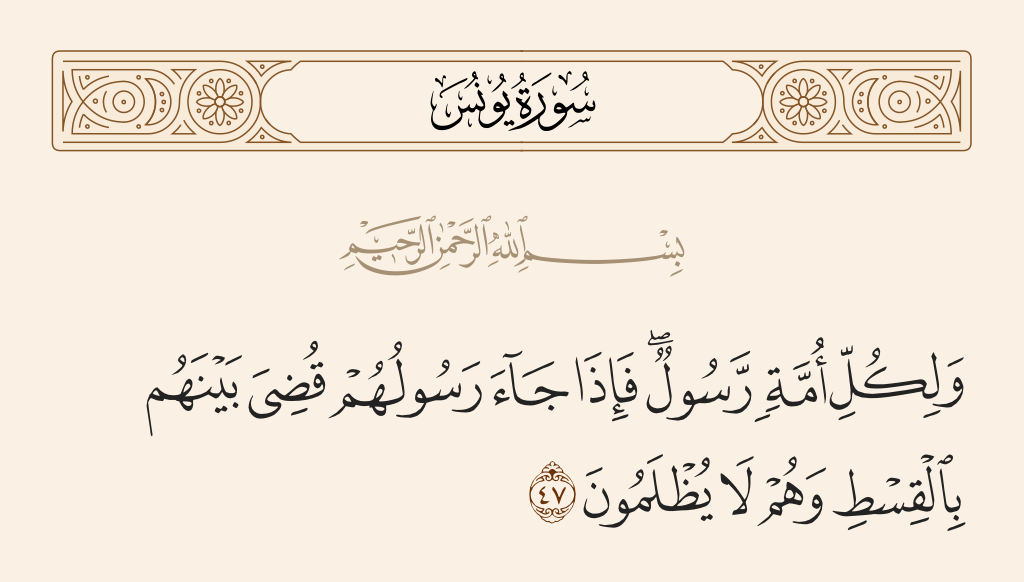 سُورَةُ يُونُسَ
بِسْمِ ٱللَّهِ ٱلرَّحْمَٰنِ ٱلرَّحِيمِ
وَلِكُلِّ أُمَّةٍ رَّسُولٌ ۖ فَإِذَا جَآءَ رَسُولُهُمْ قُضِىَ بَيْنَهُم
بِٱلْقِسْطِ وَهُمْ لَا يُظْلَمُونَ ٤٧